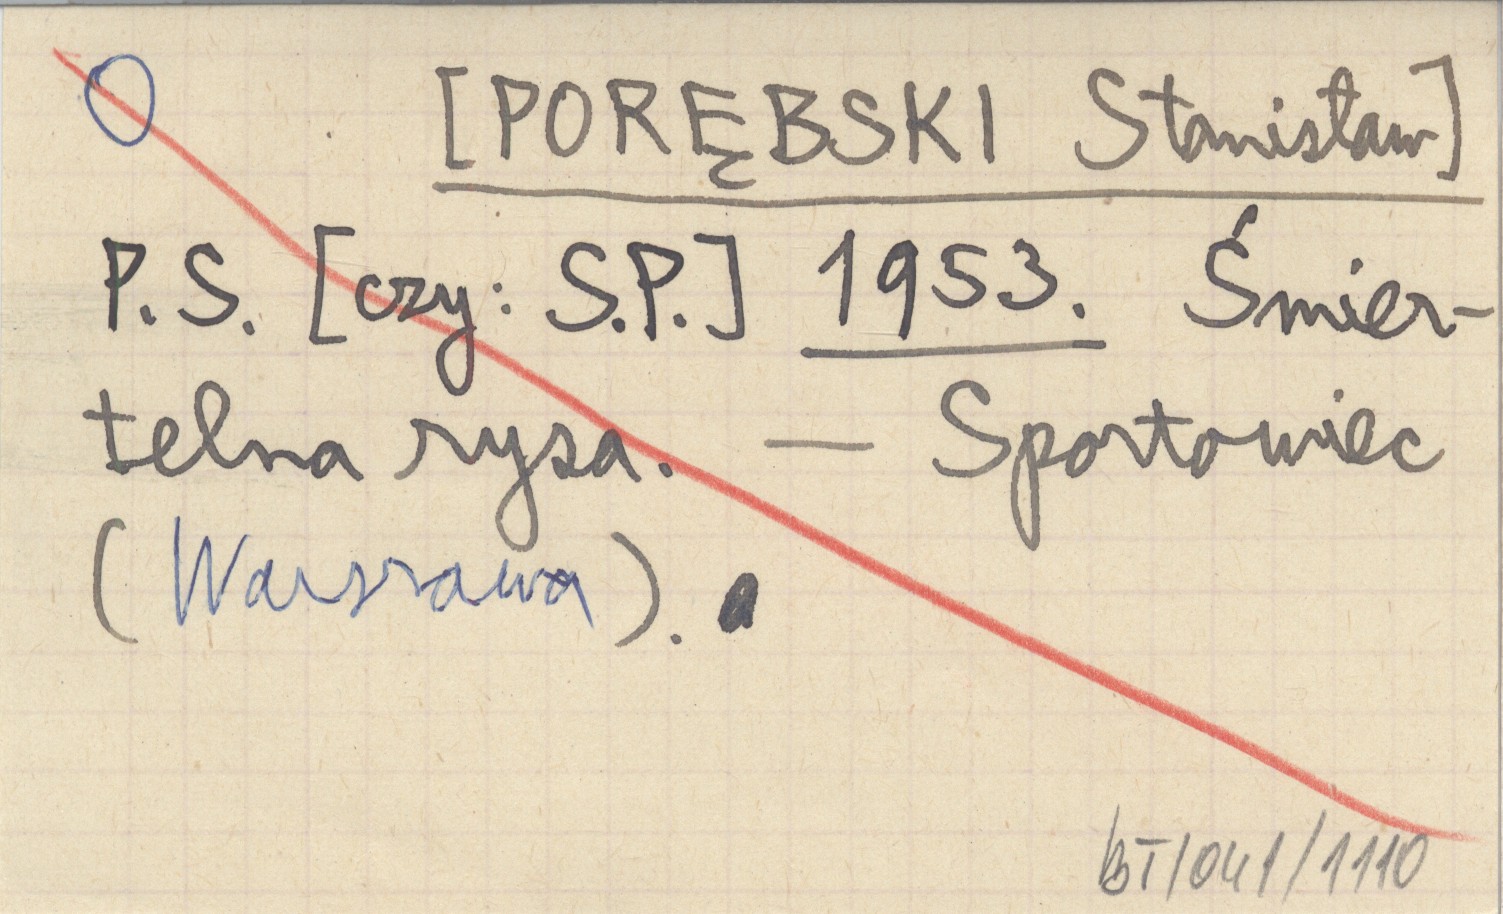 [PORĘBSKI Stanisław]
P.S. [czy: S.P.] 1953. Śmier-
telna rysa. — Sportowiec
(Warszawa).
BT/041/1110